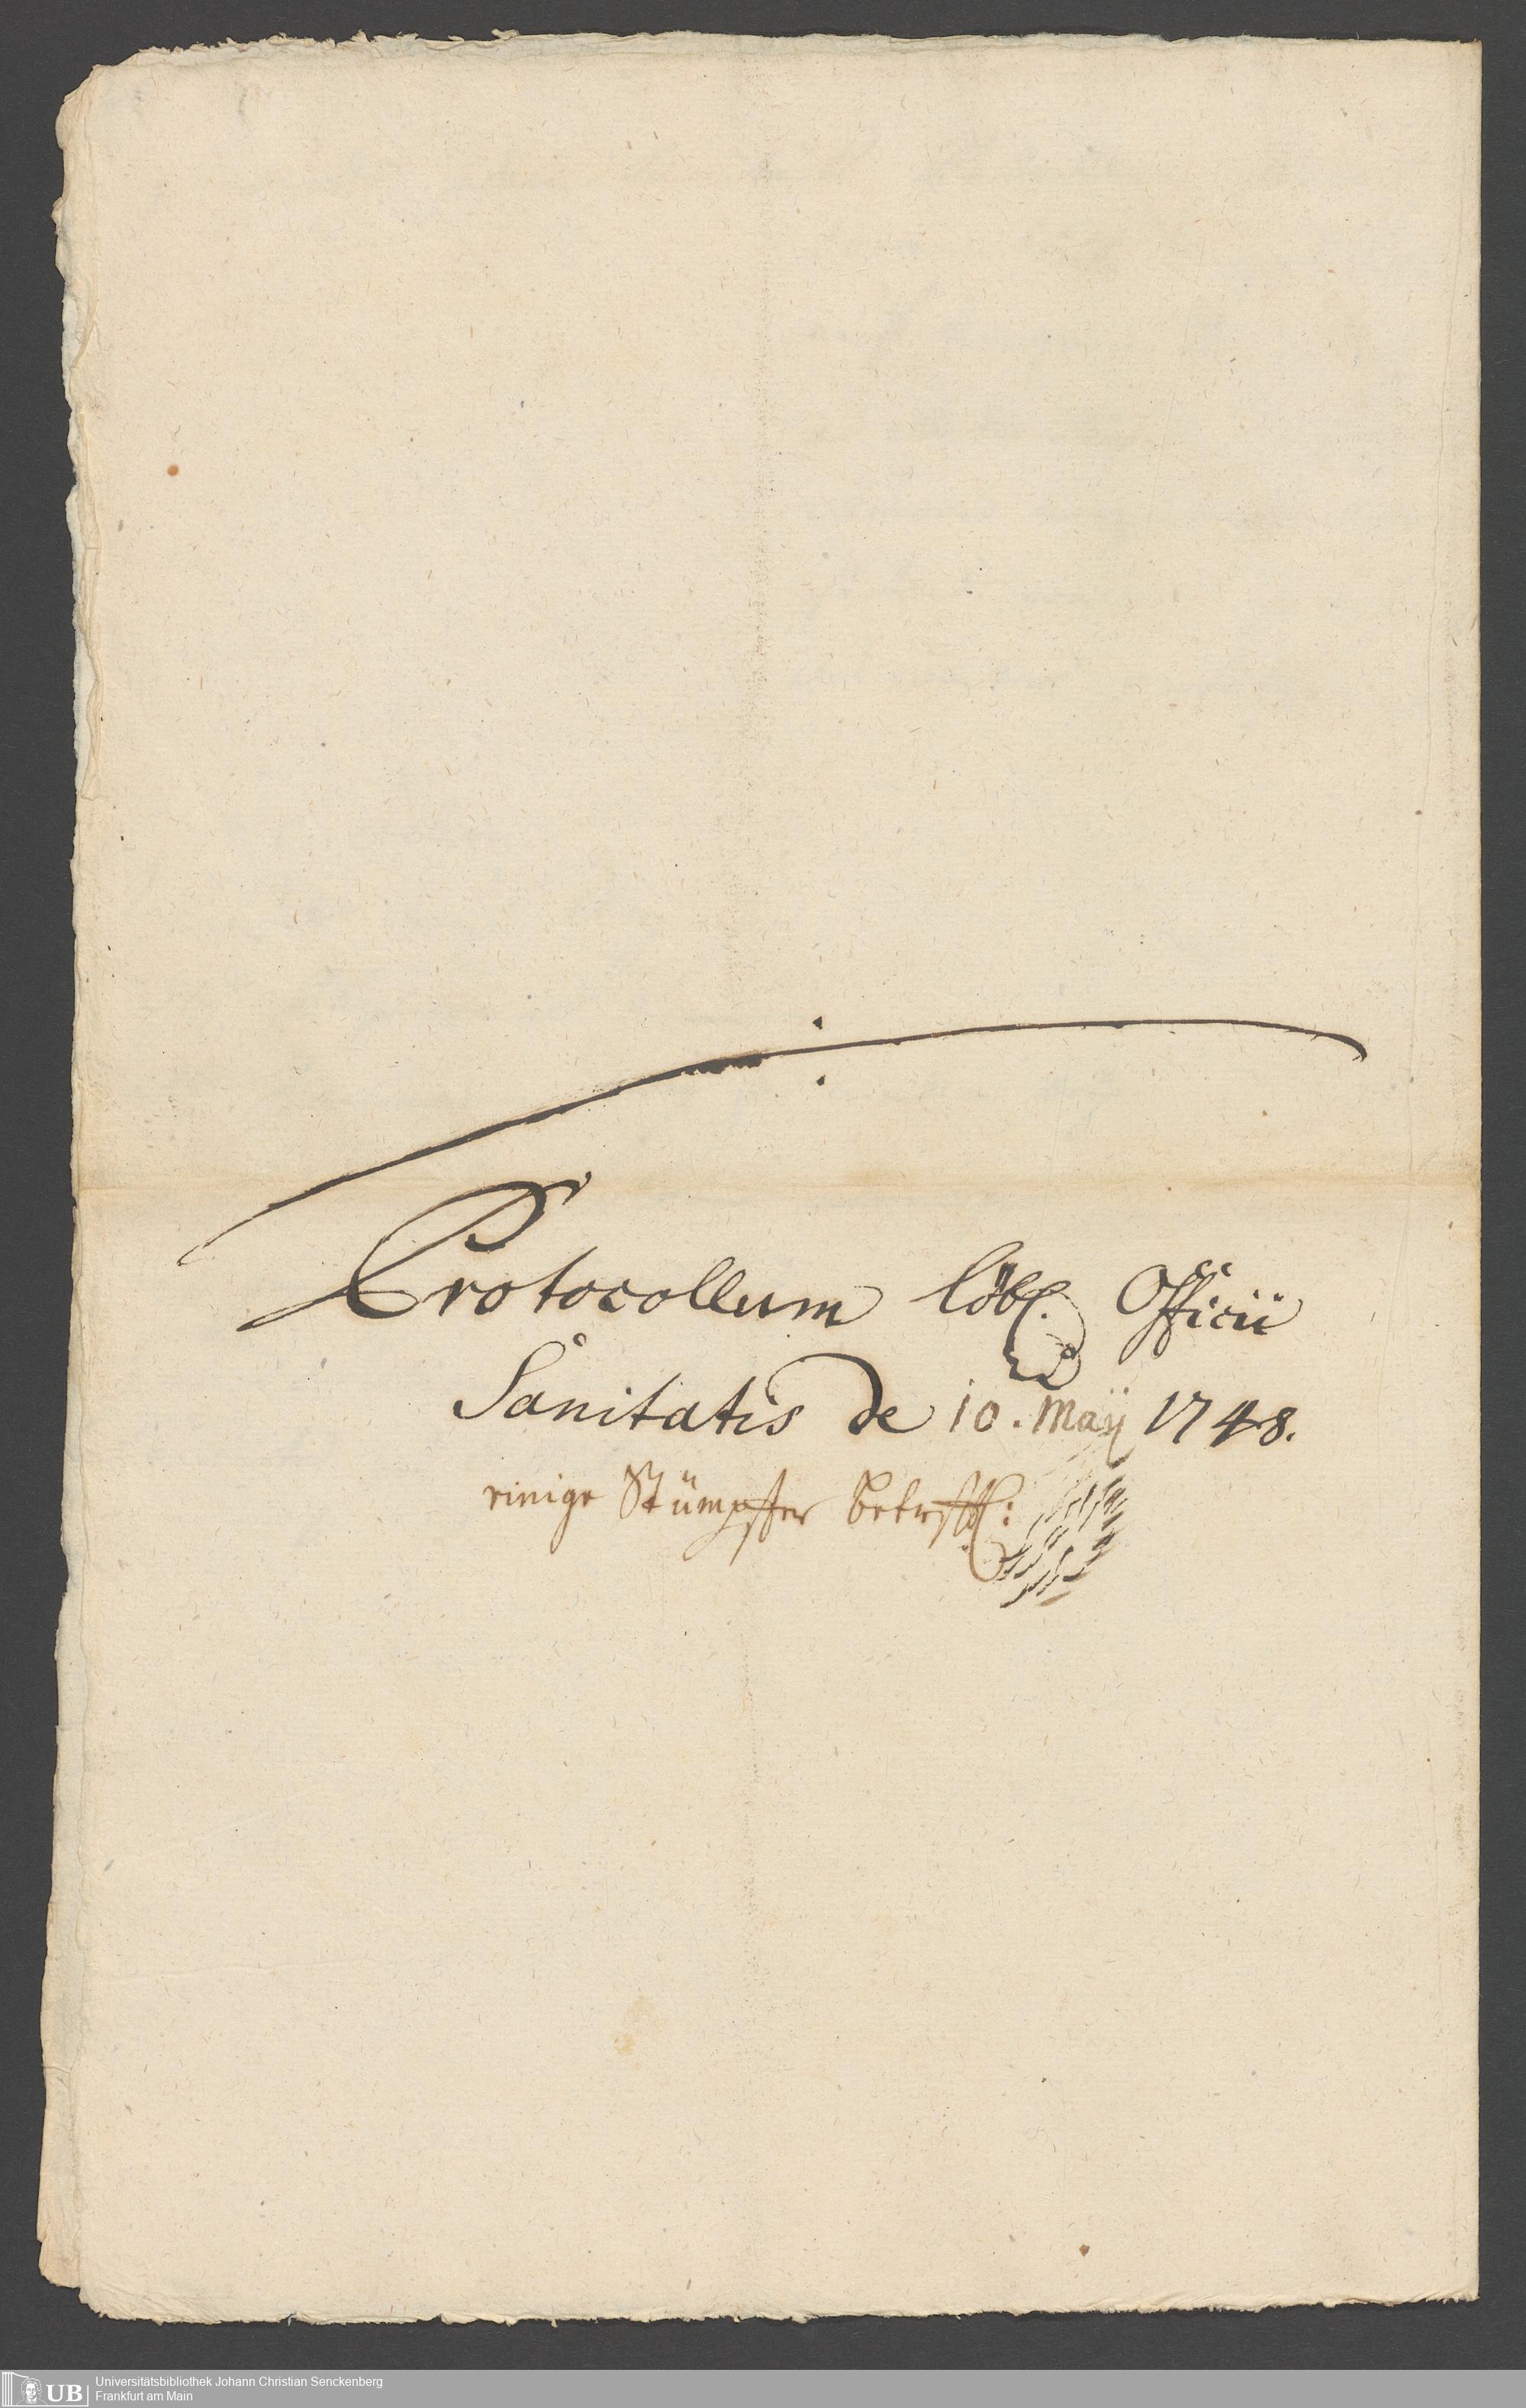 Protocollum löbl. Officii
Sanitatis de 10. Maÿ 1748.
einige Stümpffer betreffl:
UB
Universitätsbibliothek Johann Christian Senckenberg
Frankfurt am Main